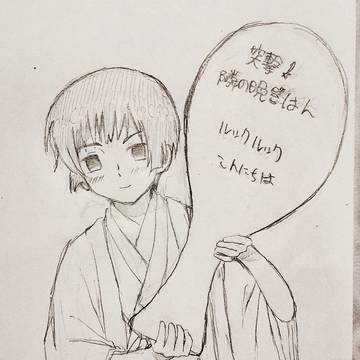 突撃!
隣の晩ごはん
ルックルック
こんにちは